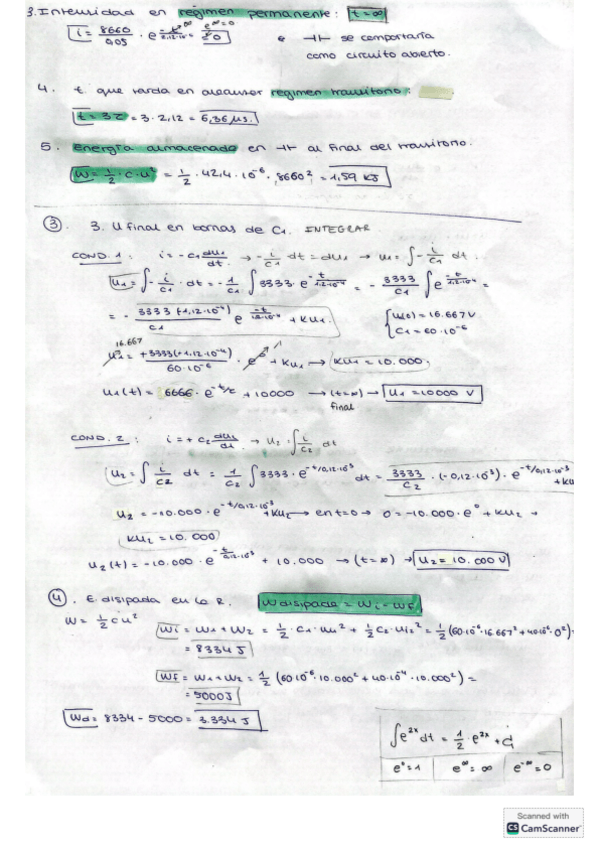 3. Intensidad en régimen permanente: t = ∞
i = 8660/0,05 · e^(-t^∞/2,12·10⁻⁶) = 0 e^∞=0 • ⊣⊢ se comportaría
como circuito abierto.
4. t. que tarda en alcanzar régimen transitorio:
t = 3τ = 3 · 2,12 = 6,36 µs.
5. Energía almacenada en ⊣⊢ al final del transitorio.
W = 1/2 · C · u² = 1/2 · 42,4 · 10⁻⁶ · 8660² = 1,59 KJ
③ 3. U final en bornas de C1. INTEGRAR
COND. 1: i = -C1 du1/dt → -i/C1 dt = du1 → u1 = ∫ -i/C1 dt.
u1 = ∫ -i/C1 · dt = -1/C1 ∫ 3333 · e^(-t/1,2·10⁻⁴) = -3333/C1 ∫ e^(-t/1,2·10⁻⁴) =
= - 3333 (-1,12·10⁻⁴)/C1 e^(-t/1,2·10⁻⁴) + Ku1. { u(0) = 16.667 V
C1 = 60·10⁻⁶
16.667
u1 = +3333(+1,12·10⁻⁴)/60·10⁻⁶ · e⁰ + Ku1 → Ku1 = 10.000.
u1(t) = 6666 · e^(-t/τ) + 10000 → (t=∞) → U1 = 10000 V
final
COND. 2: i = + C2 du2/dt → u2 = ∫ i/C2 dt
u2 = ∫ i/C2 dt = 1/C2 ∫ 3333 · e^(-t/0,12·10⁻³) dt = 3333/C2 · (-0,12·10⁻³) · e^(-t/0,12·10⁻³) + Ku
u2 = -10.000 · e^(-t/0,12·10⁻³) + Ku2 → en t=0 → 0 = -10.000 · e⁰ + Ku2 →
Ku2 = 10.000
u2(t) = -10.000 · e^(-t/0,12·10⁻³) + 10.000 → (t=∞) → U2 = 10.000 V
④. E. disipada en la R. Wdisipada = Wi - Wf
W = 1/2 C u²
Wi = W1 + W2 = 1/2 · C1 · u1² + 1/2 C2 · u2² = 1/2 (60·10⁻⁶ · 16.667² + 40·10⁻⁶ · 0²)
= 8334 J
Wf = W1 + W2 = 1/2 (60·10⁻⁶ · 10.000² + 40·10⁻⁴ · 10.000²) =
= 5000 J
Wd = 8334 - 5000 = 3.334 J
∫e^2x dt = 1/2 · e^2x + C
e⁰ = 1 e^∞ = ∞ e^-∞ = 0
Scanned with
CS CamScanner